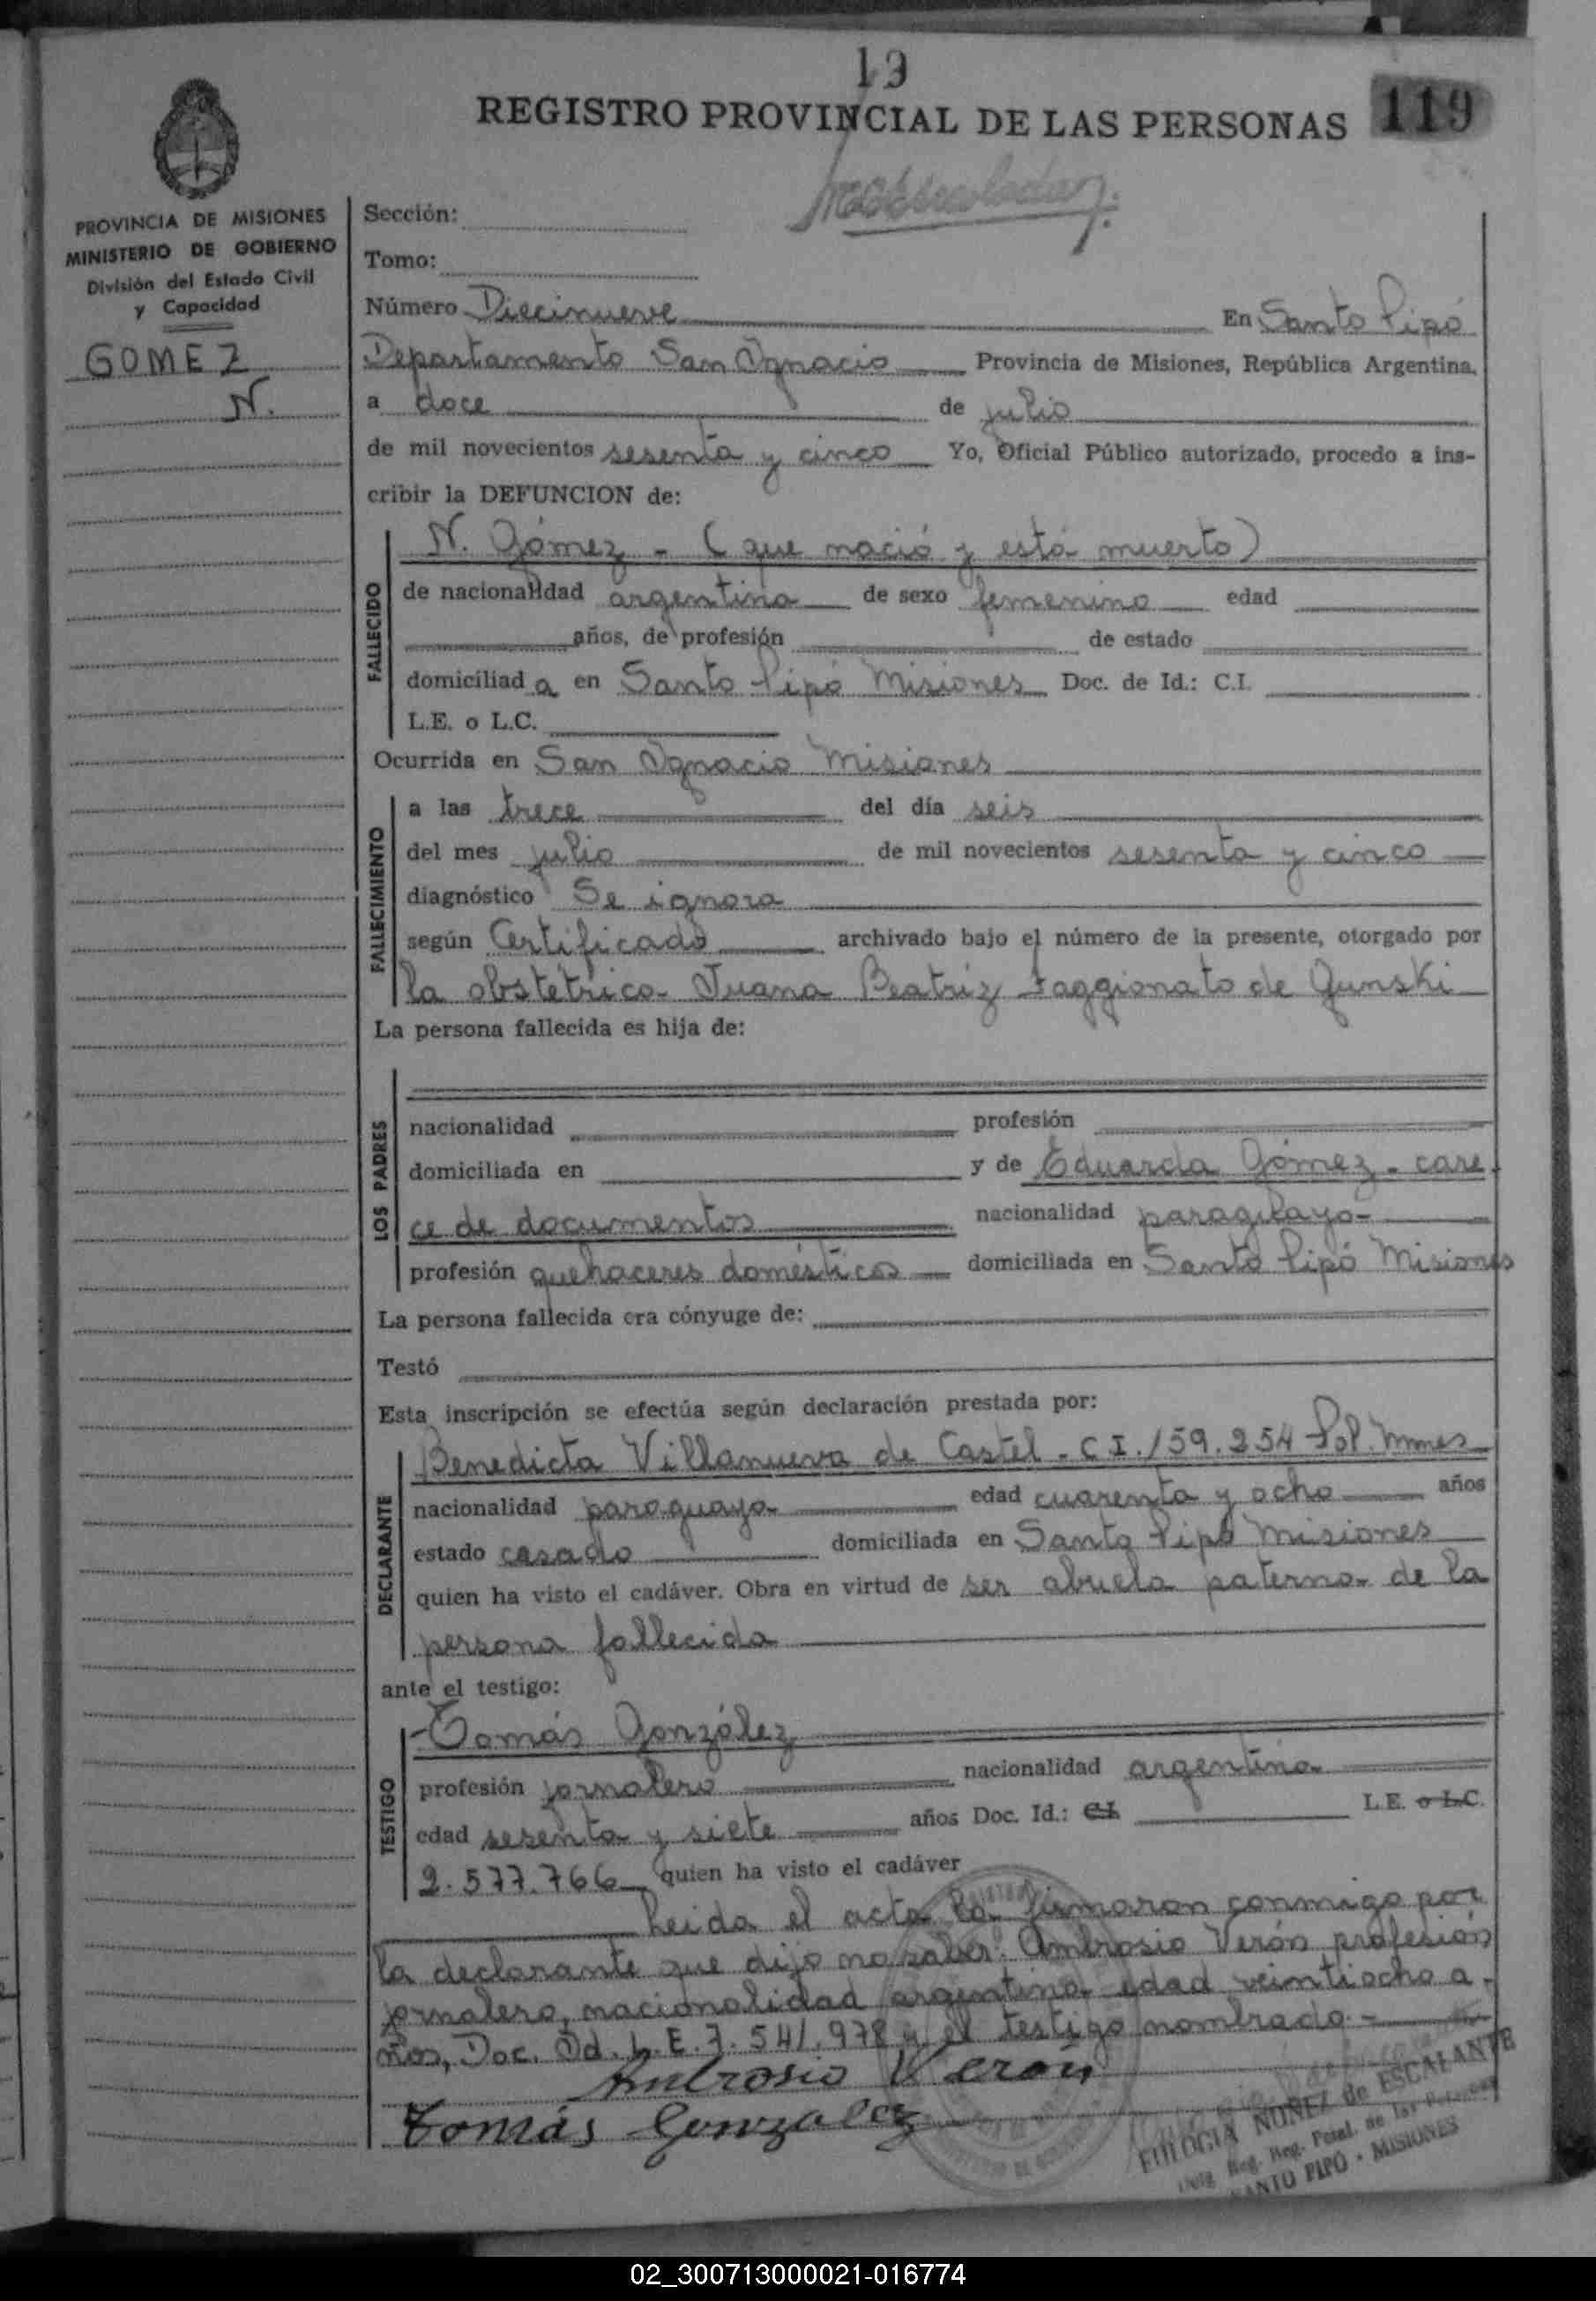 19
REGISTRO PROVINCIAL DE LAS PERSONAS 119
PROVINCIA DE MISIONES
MINISTERIO DE GOBIERNO
División del Estado Civil
y Capacidad
GOMEZ
N.
Sección:
Tomo:
Número Diecinueve En Santo Pipó
Departamento San Ignacio Provincia de Misiones, República Argentina,
a doce de julio
de mil novecientos sesenta y cinco Yo, Oficial Público autorizado, procedo a ins-
cribir la DEFUNCION de:
FALLECIDO
N. Gómez - (que nació y está muerto)
de nacionalidad argentina de sexo femenino edad
años, de profesión de estado
domiciliad a en Santo Pipó Misiones Doc. de Id.: C.I.
L.E. o L.C.
Ocurrida en San Ignacio Misiones
FALLECIMIENTO
a las trece del día seis
del mes julio de mil novecientos sesenta y cinco
diagnóstico Se ignora
según Certificado archivado bajo el número de la presente, otorgado por
la obstétrica Juana Beatríz Faggionato de Gunski
La persona fallecida es hija de:
LOS PADRES
nacionalidad profesión
domiciliada en y de Eduarda Gómez - care
ce de documentos nacionalidad paraguaya
profesión quehaceres domésticos domiciliada en Santo Pipó Misiones
La persona fallecida era cónyuge de:
Testó
Esta inscripción se efectúa según declaración prestada por:
DECLARANTE
Benedicta Villanueva de Castel - C.I. 159.254 Pol. Mnes
nacionalidad paraguaya edad cuarenta y ocho años
estado casada domiciliada en Santo Pipó Misiones
quien ha visto el cadáver. Obra en virtud de ser abuela paterna de la
persona fallecida
ante el testigo:
TESTIGO
Tomás González
profesión jornalero nacionalidad argentina
edad sesenta y siete años Doc. Id.: C.I. L.E. o L.C.
2.577.766 quien ha visto el cadáver
Leida el acta la firmaron conmigo por
la declarante que dijo no saber: Ambrosio Verón profesión
jornalero, nacionalidad argentina edad veintiocho a-
ños, Doc. Id. L.E. 7.541.978 y el testigo nombrado.-
Ambrosio Verón
Tomás Gonzalez
EULOGIA NUÑEZ de ESCALANTE
Reg. Pcial. de las Personas
SANTO PIPÓ - MISIONES
02_300713000021-016774